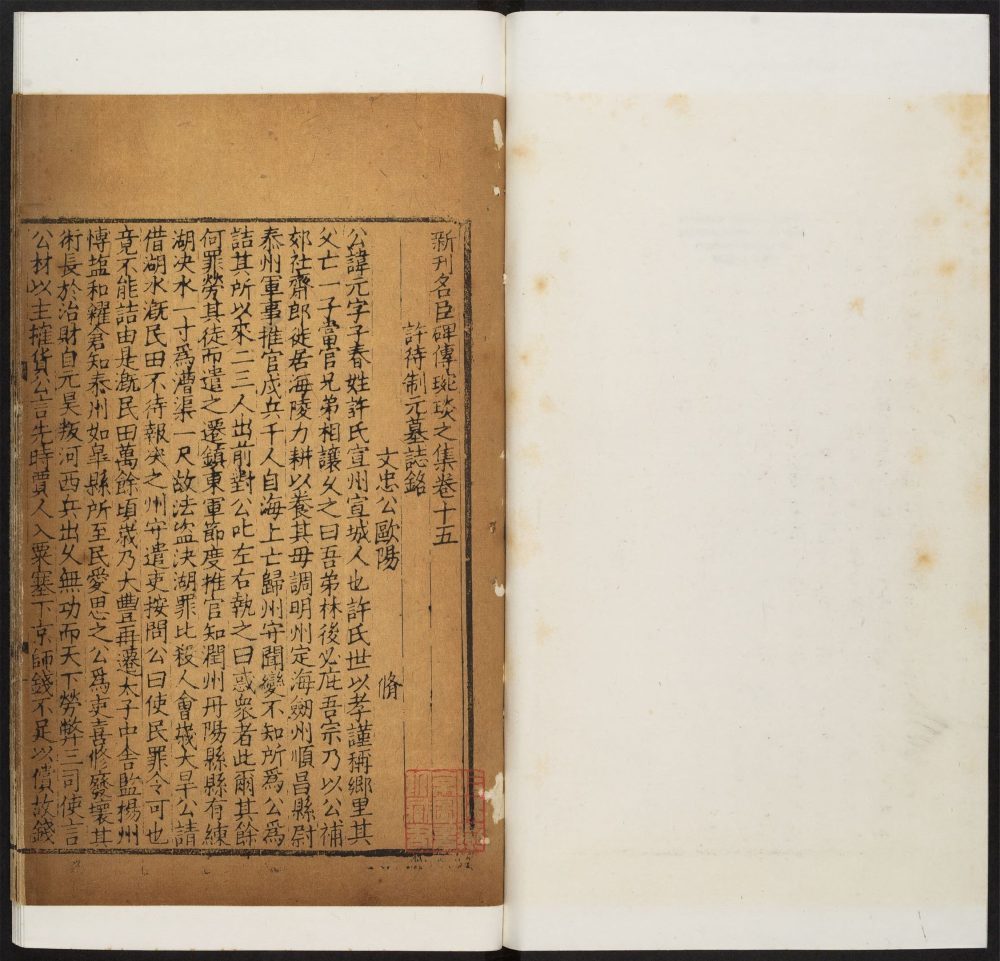 新刊名臣碑傳琬琰之集卷十五
許待制元墓誌銘
文忠公歐陽 脩
公諱元字子春姓許氏宣州宣城人也許氏世以孝謹稱鄉里其
父亡一子當官兄弟相讓乆之曰吾弟材後必庇吾宗乃以公補
郊社齋郎徙居海陵力耕以養其母調明州定海劒州順昌縣尉
泰州軍事推官戍兵千人自海上亡歸州守聞變不知所爲公爲
詰其所以來二三人出前對公叱左右執之曰惑衆者此爾其餘
何罪勞其徒而遣之遷鎮東軍節度推官知潤州丹陽縣縣有練
湖决水一寸爲漕渠一尺故法盗决湖罪比殺人會歲大旱公請
借湖水溉民田不待報决之州守遣吏按問公曰使民罪令可也
竟不能詰由是溉民田萬餘頃歲乃大豐再遷太子中舎監揚州
愽塩和糴倉知泰州如皐縣所至民愛思之公爲吏喜修廢壞其
術長於治財自元昊叛河西兵出乆無功而天下勞弊三司使言
公材以主𣙜貨公言先時賈人入粟塞下京師錢不足以償故錢